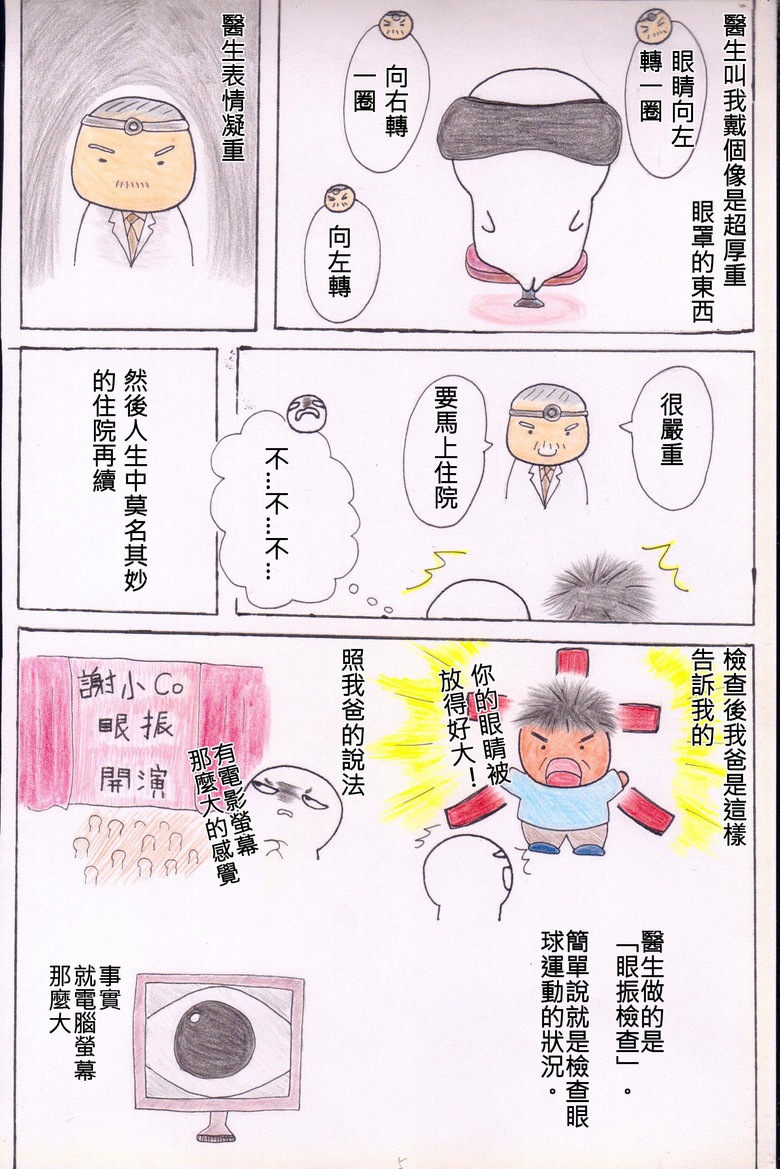 醫生叫我戴個像是超厚重
眼罩的東西
眼睛向左
轉一圈
向右轉
一圈
向左轉
醫生表情凝重
很嚴重
要馬上住院
不…不…不…
然後人生中莫名其妙
的住院再續
檢查後我爸是這樣
告訴我的
你的眼睛被
放得好大！
照我爸的說法
有電影螢幕
那麼大的感覺
謝小Co
眼振
開演
醫生做的是
「眼振檢查」。
簡單說就是檢查眼
球運動的狀況。
事實
就電腦螢幕
那麼大
5